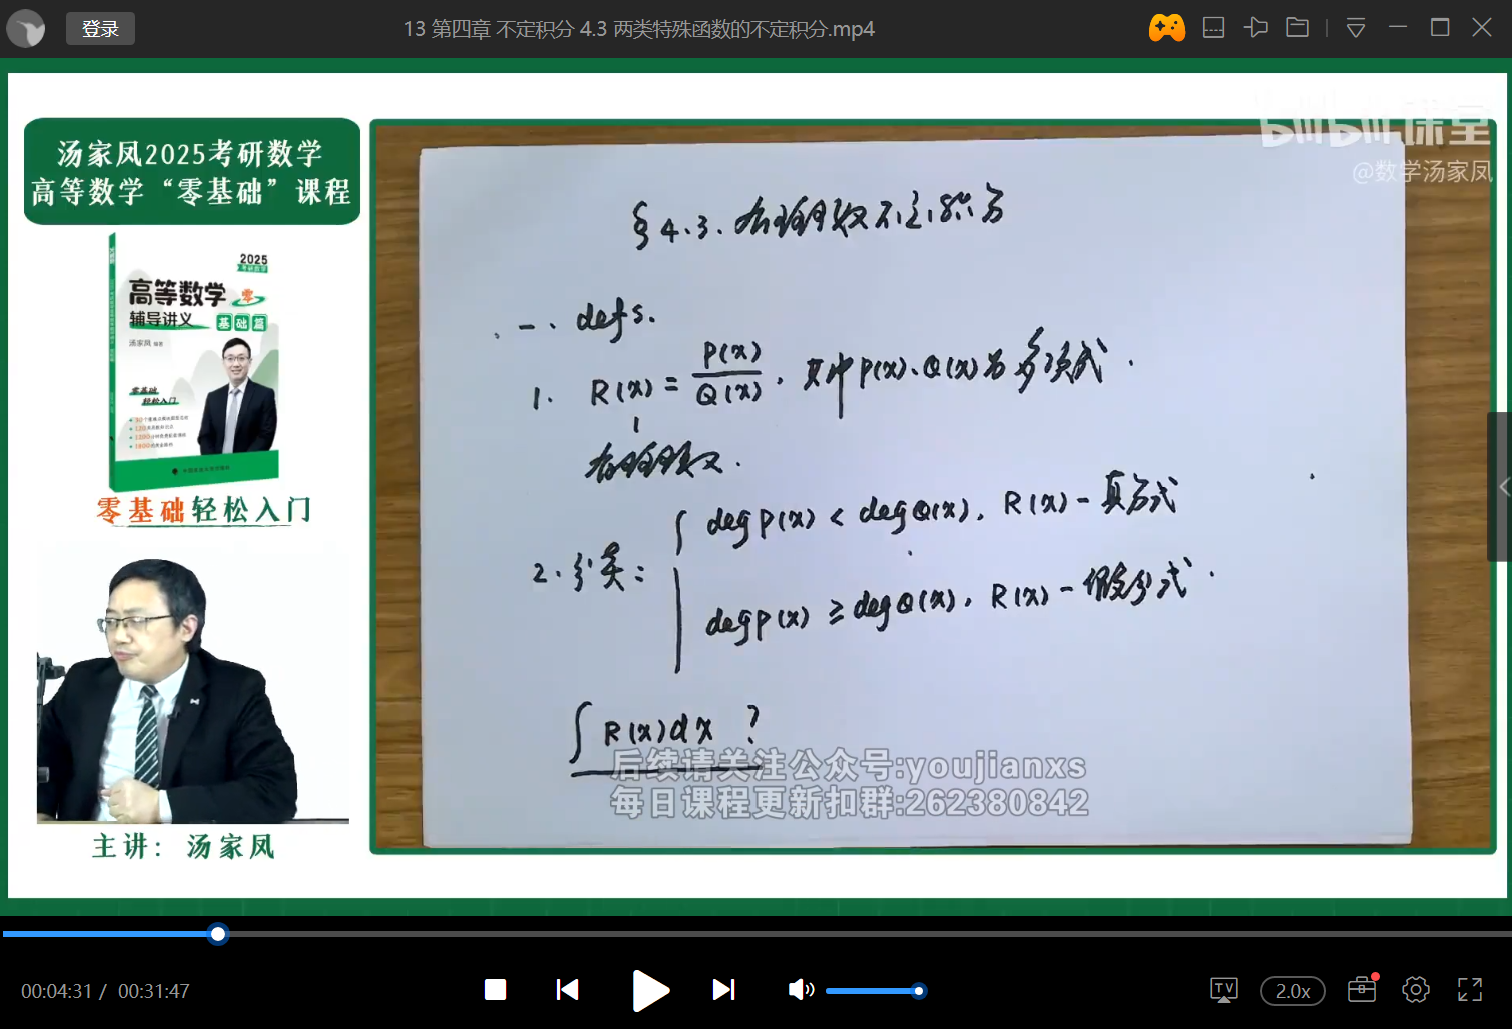 登录
13 第四章 不定积分 4.3 两类特殊函数的不定积分.mp4
汤家凤2025考研数学
高等数学“零基础”课程
2025
考研数学
高等数学 零
辅导讲义 基础篇
汤家凤
零基础
轻松入门
零基础轻松入门
主讲：汤家凤
bilibili课堂
@数学汤家凤
§4.3. 有理函数不定积分
一. defs.
1. R(x) = P(x)/Q(x), 其中P(x)、Q(x)为多项式.
有理函数.
2. 分类:
degP(x) < degQ(x), R(x)-真分式
degP(x) ≥ degQ(x), R(x)-假分式.
∫R(x)dx ?
后续请关注公众号:youjianxs
每日课程更新扣群:262380842
00:04:31 / 00:31:47
TV
2.0x